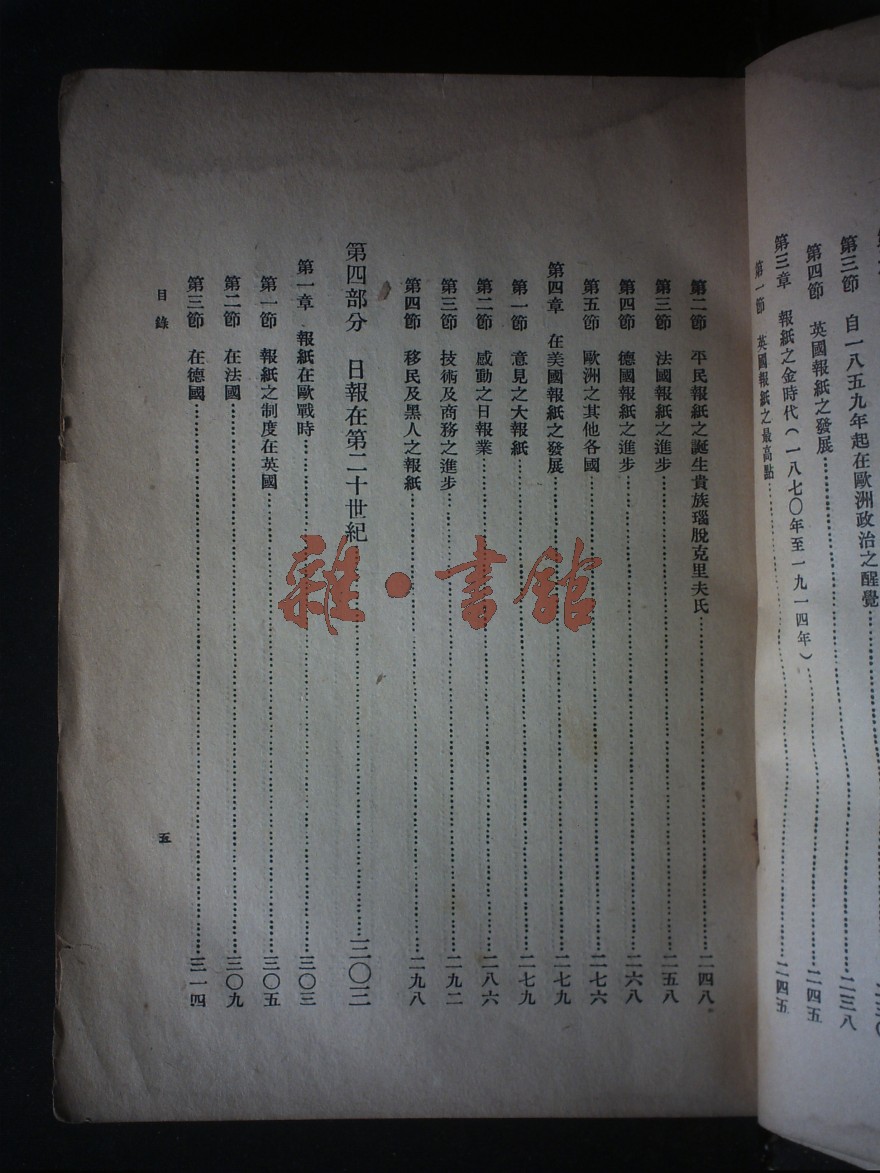 第三節　自一八五九年起在歐洲政治之醒覺……二三八
第四節　英國報紙之發展……二四五
第三章　報紙之金時代（一八七〇年至一九一四年）……二四五
第一節　英國報紙之最高點……二四五
第二節　平民報紙之誕生貴族瑙脫克里夫氏……二四八
第三節　法國報紙之進步……二五八
第四節　德國報紙之進步……二六八
第五節　歐洲之其他各國……二七六
第四章　在美國報紙之發展……二七九
第一節　意見之大報紙……二七九
第二節　感動之日報業……二八六
第三節　技術及商務之進步……二九二
第四節　移民及黑人之報紙……二九八
第四部分　日報在第二十世紀……三〇三
第一章　報紙在歐戰時……三〇三
第一節　報紙之制度在英國……三〇五
第二節　在法國……三〇九
第三節　在德國……三一四
目錄
五
雜·書館